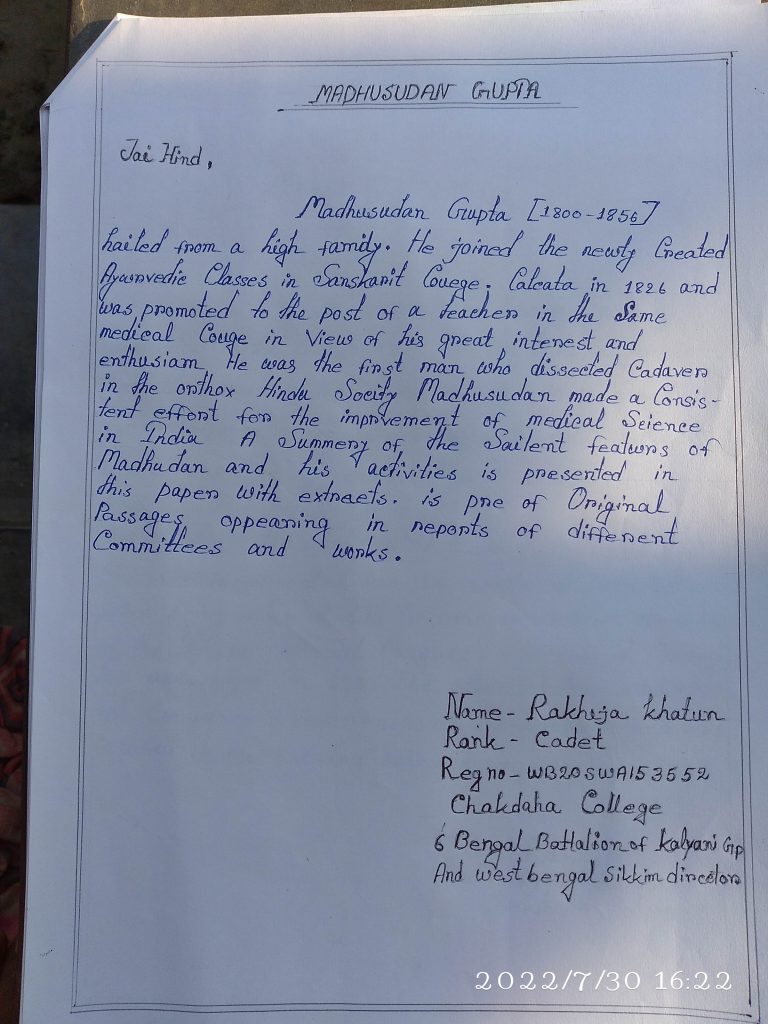 MADHUSUDAN GUPTA
Jai Hind,
Madhusudan Gupta [1800-1856]
hailed from a high family. He joined the newly Created
Ayurvedic Classes in Sanskarit Couege. Calcata in 1826 and
was promoted to the post of a teacher in the Same
medical Couge in View of his great interest and
enthusiam. He was the first man who dissected Cadaver
in the orthox Hindu Socity Madhusudan made a Consis-
tent effort for the imprvement of medical Science
in India A Summery of the Sailent featurs of
Madhudan and his activities is presented in
this paper with extraets. is pre of Original
Passages oppearing in reports of different
Committees and works.
Name - Rakhija Khatun
Rank - Cadet
Reg no - WB20SWA153552
Chakdaha College
6 Bengal Battalion of Kalyani Grp
And west bengal Sikkim
2022/7/30 16:22